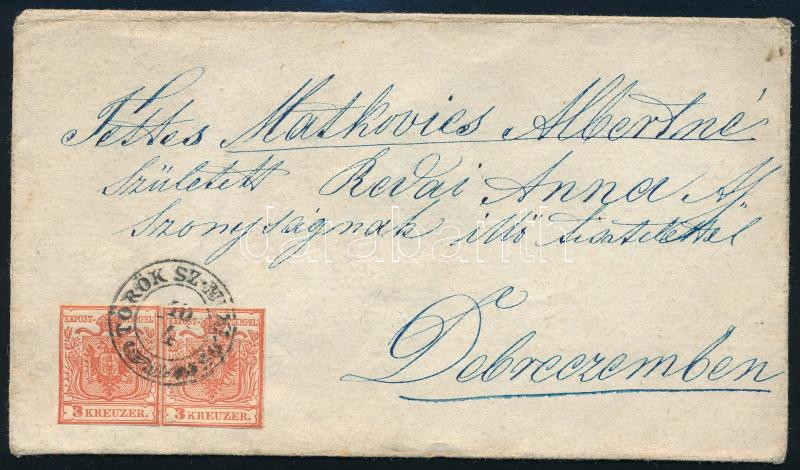 Tettes Matkovics Albertné
Született Revai Anna Aſ
szonyságnak illő tisztelettel
Debreczemben
darabanth
TÖRÖK SZ. MIKLOS
10
4
KKPOST-STEMPEL
3 KREUZER.
KKPOST-STEMPEL
3 KREUZER.